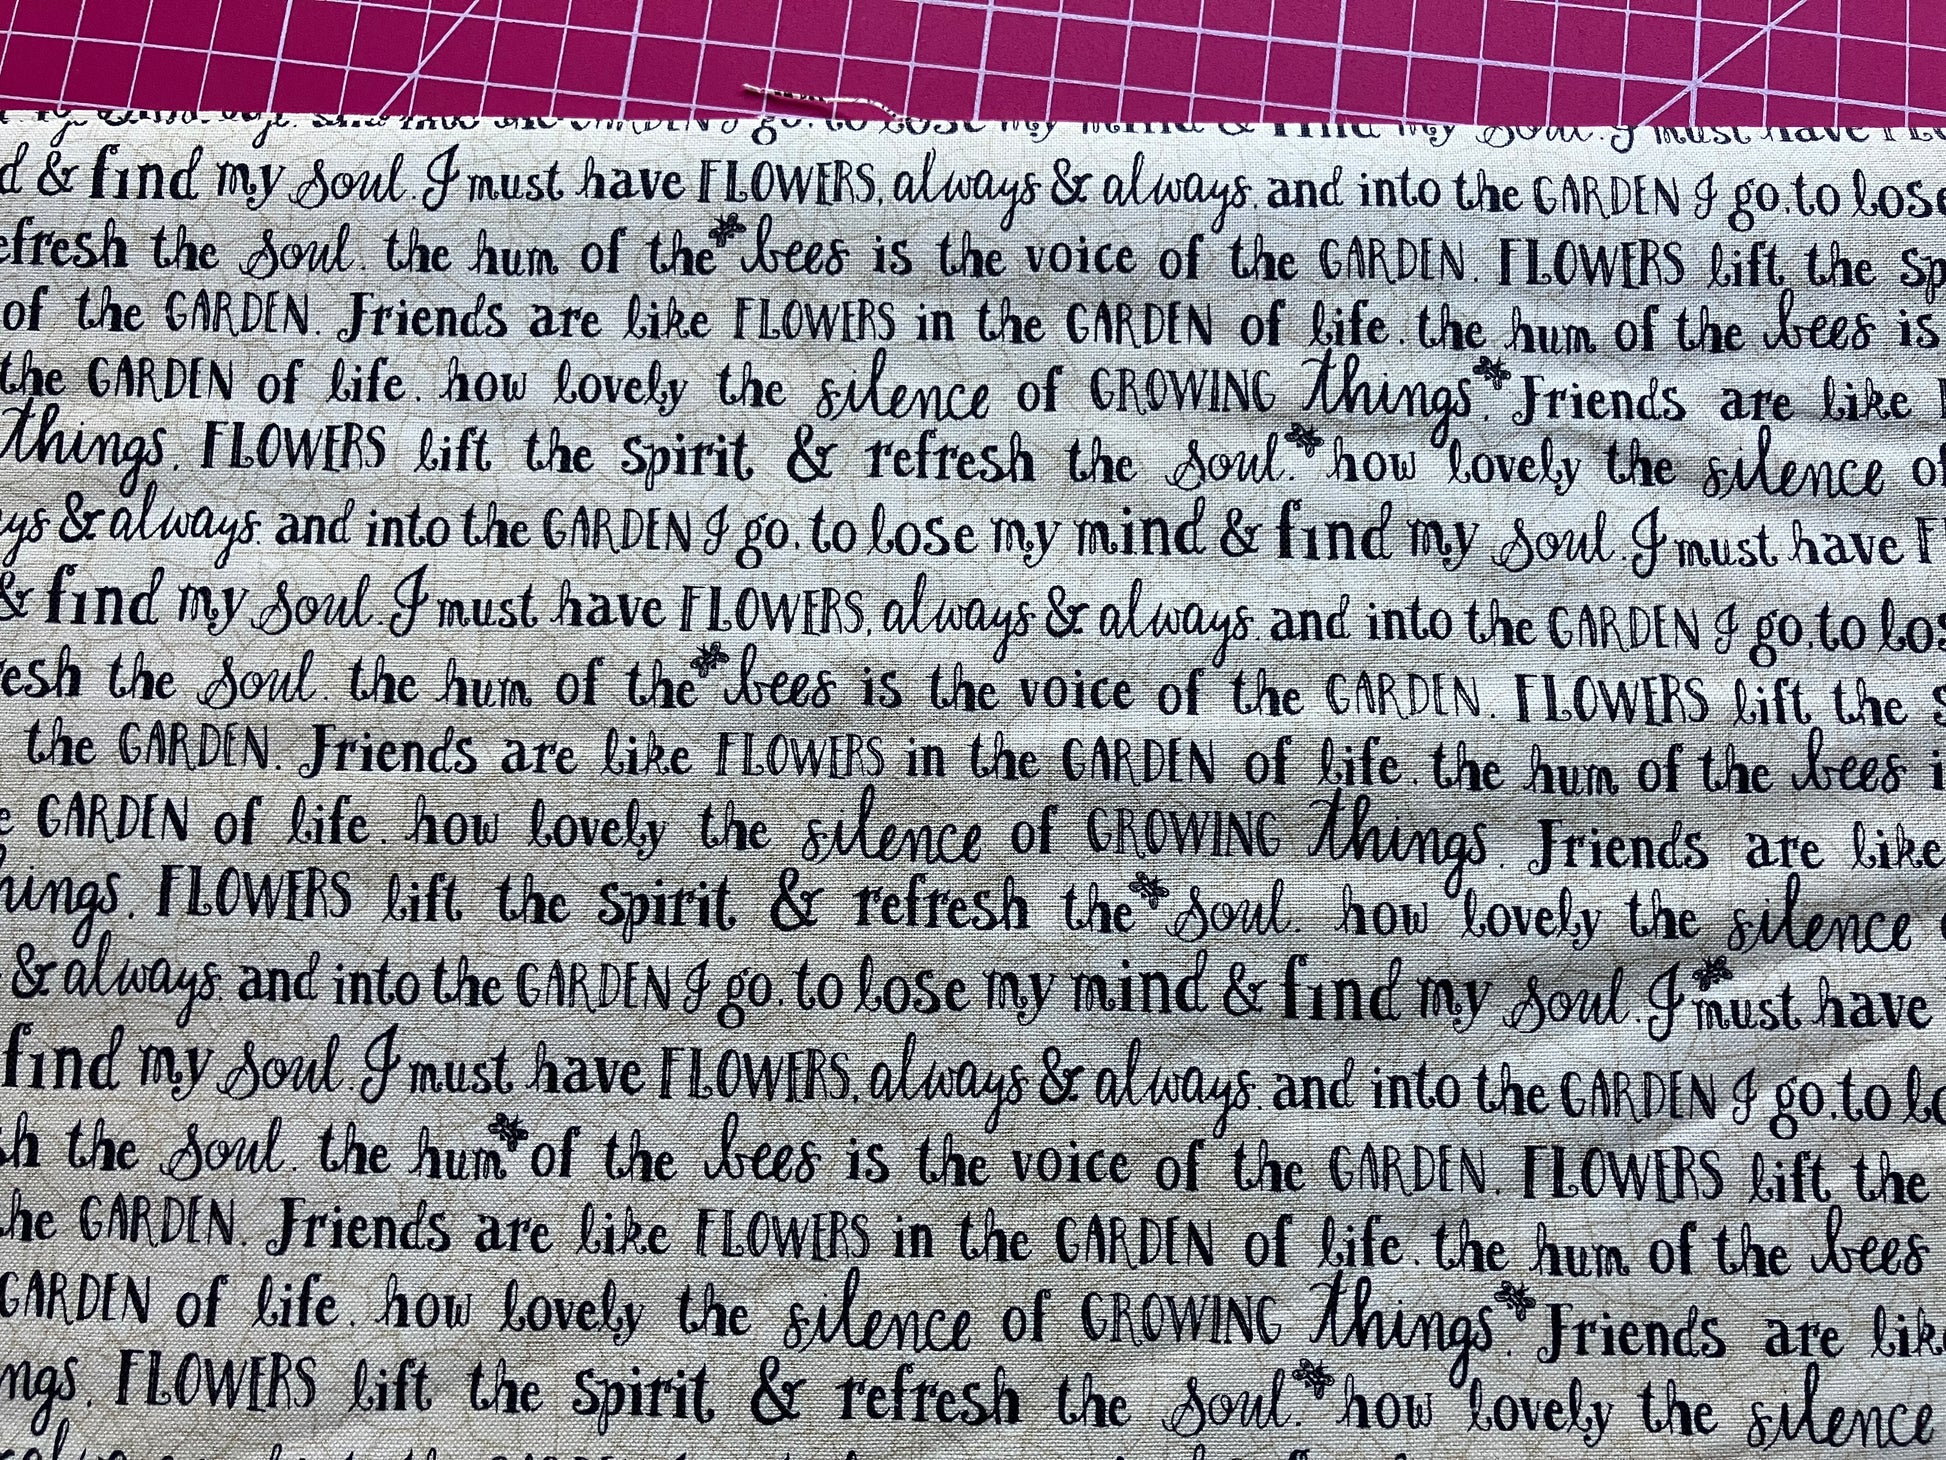 go. to lose my mind & find my soul. I must have
& find my soul. I must have FLOWERS, always & always. and into the GARDEN I go. to lose
the soul. the hum of the bees is the voice of the GARDEN. FLOWERS lift the
of the GARDEN. Friends are like FLOWERS in the GARDEN of life. the hum of the bees is
the GARDEN of life. how lovely the silence of GROWING things. Friends are like
things. FLOWERS lift the spirit & refresh the soul. how lovely the silence of
& always. and into the GARDEN I go. to lose my mind & find my soul. I must have
& find my soul. I must have FLOWERS, always & always. and into the GARDEN I go. to
the soul. the hum of the bees is the voice of the GARDEN. FLOWERS lift the
the GARDEN. Friends are like FLOWERS in the GARDEN of life. the hum of the bees
GARDEN of life. how lovely the silence of GROWING things. Friends are like
FLOWERS lift the spirit & refresh the soul. how lovely the silence
& always. and into the GARDEN I go. to lose my mind & find my soul. I must have
find my soul. I must have FLOWERS, always & always. and into the GARDEN I go. to
the soul. the hum of the bees is the voice of the GARDEN. FLOWERS lift the
GARDEN. Friends are like FLOWERS in the GARDEN of life. the hum of the bees
GARDEN of life. how lovely the silence of GROWING things. Friends are
FLOWERS lift the spirit & refresh the soul. how lovely the silence